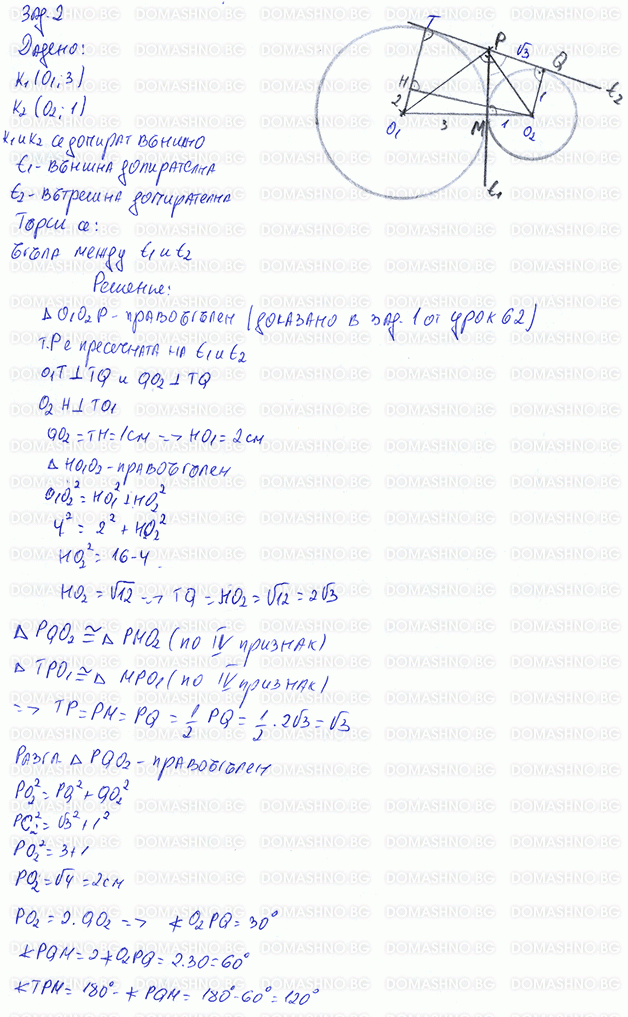 Зад. 2
Дадено:
K₁ (O₁; 3)
K₂ (O₂; 1)
K₁ и K₂ се допират външно
t₁ - външна допирателна
t₂ - вътрешна допирателна
Търси се:
ъгъла между t₁ и t₂
Решение:
△ O₁O₂P - правоъгълен (доказано в зад. 1 от урок 62)
т. P е пресечната на t₁ и t₂
O₁T ⊥ TQ и QO₂ ⊥ TQ
O₂H ⊥ TO₁
QO₂ = TH = 1см => HO₁ = 2см
△ HO₁O₂ - правоъгълен
O₁O₂² = HO₁² + HO₂²
4² = 2² + HO₂²
HO₂² = 16-4
HO₂ = √12 -> TQ = HO₂ = √12 = 2√3
△ PQO₂ ≅ △ PMO₂ (по IV признак)
△ TPO₁ ≅ △ MPO₁ (по IV признак)
=> TP = PM = PQ = 1/2 PQ = 1/2 . 2√3 = √3
Разгл. △ PQO₂ - правоъгълен
PO₂² = PQ² + QO₂²
PO₂² = √3² + 1²
PO₂² = 3+1
PO₂ = √4 = 2см
PO₂ = 2. QO₂ => ∢ O₂PQ = 30°
∢ PQM = 2∢O₂PQ = 2.30 = 60°
∢ TPM = 180° - ∢ PQM = 180° - 60° = 120°
T
P
√3
Q
t₂
H
2
1
O₁
3
M
1
O₂
t₁
DOMASHNO.BG